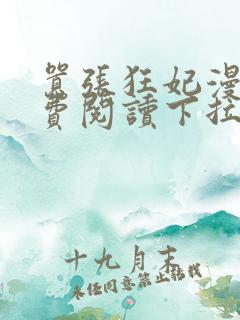 囂張狂妃漫
費閱讀下拉
十九月末
未经同意禁止转载